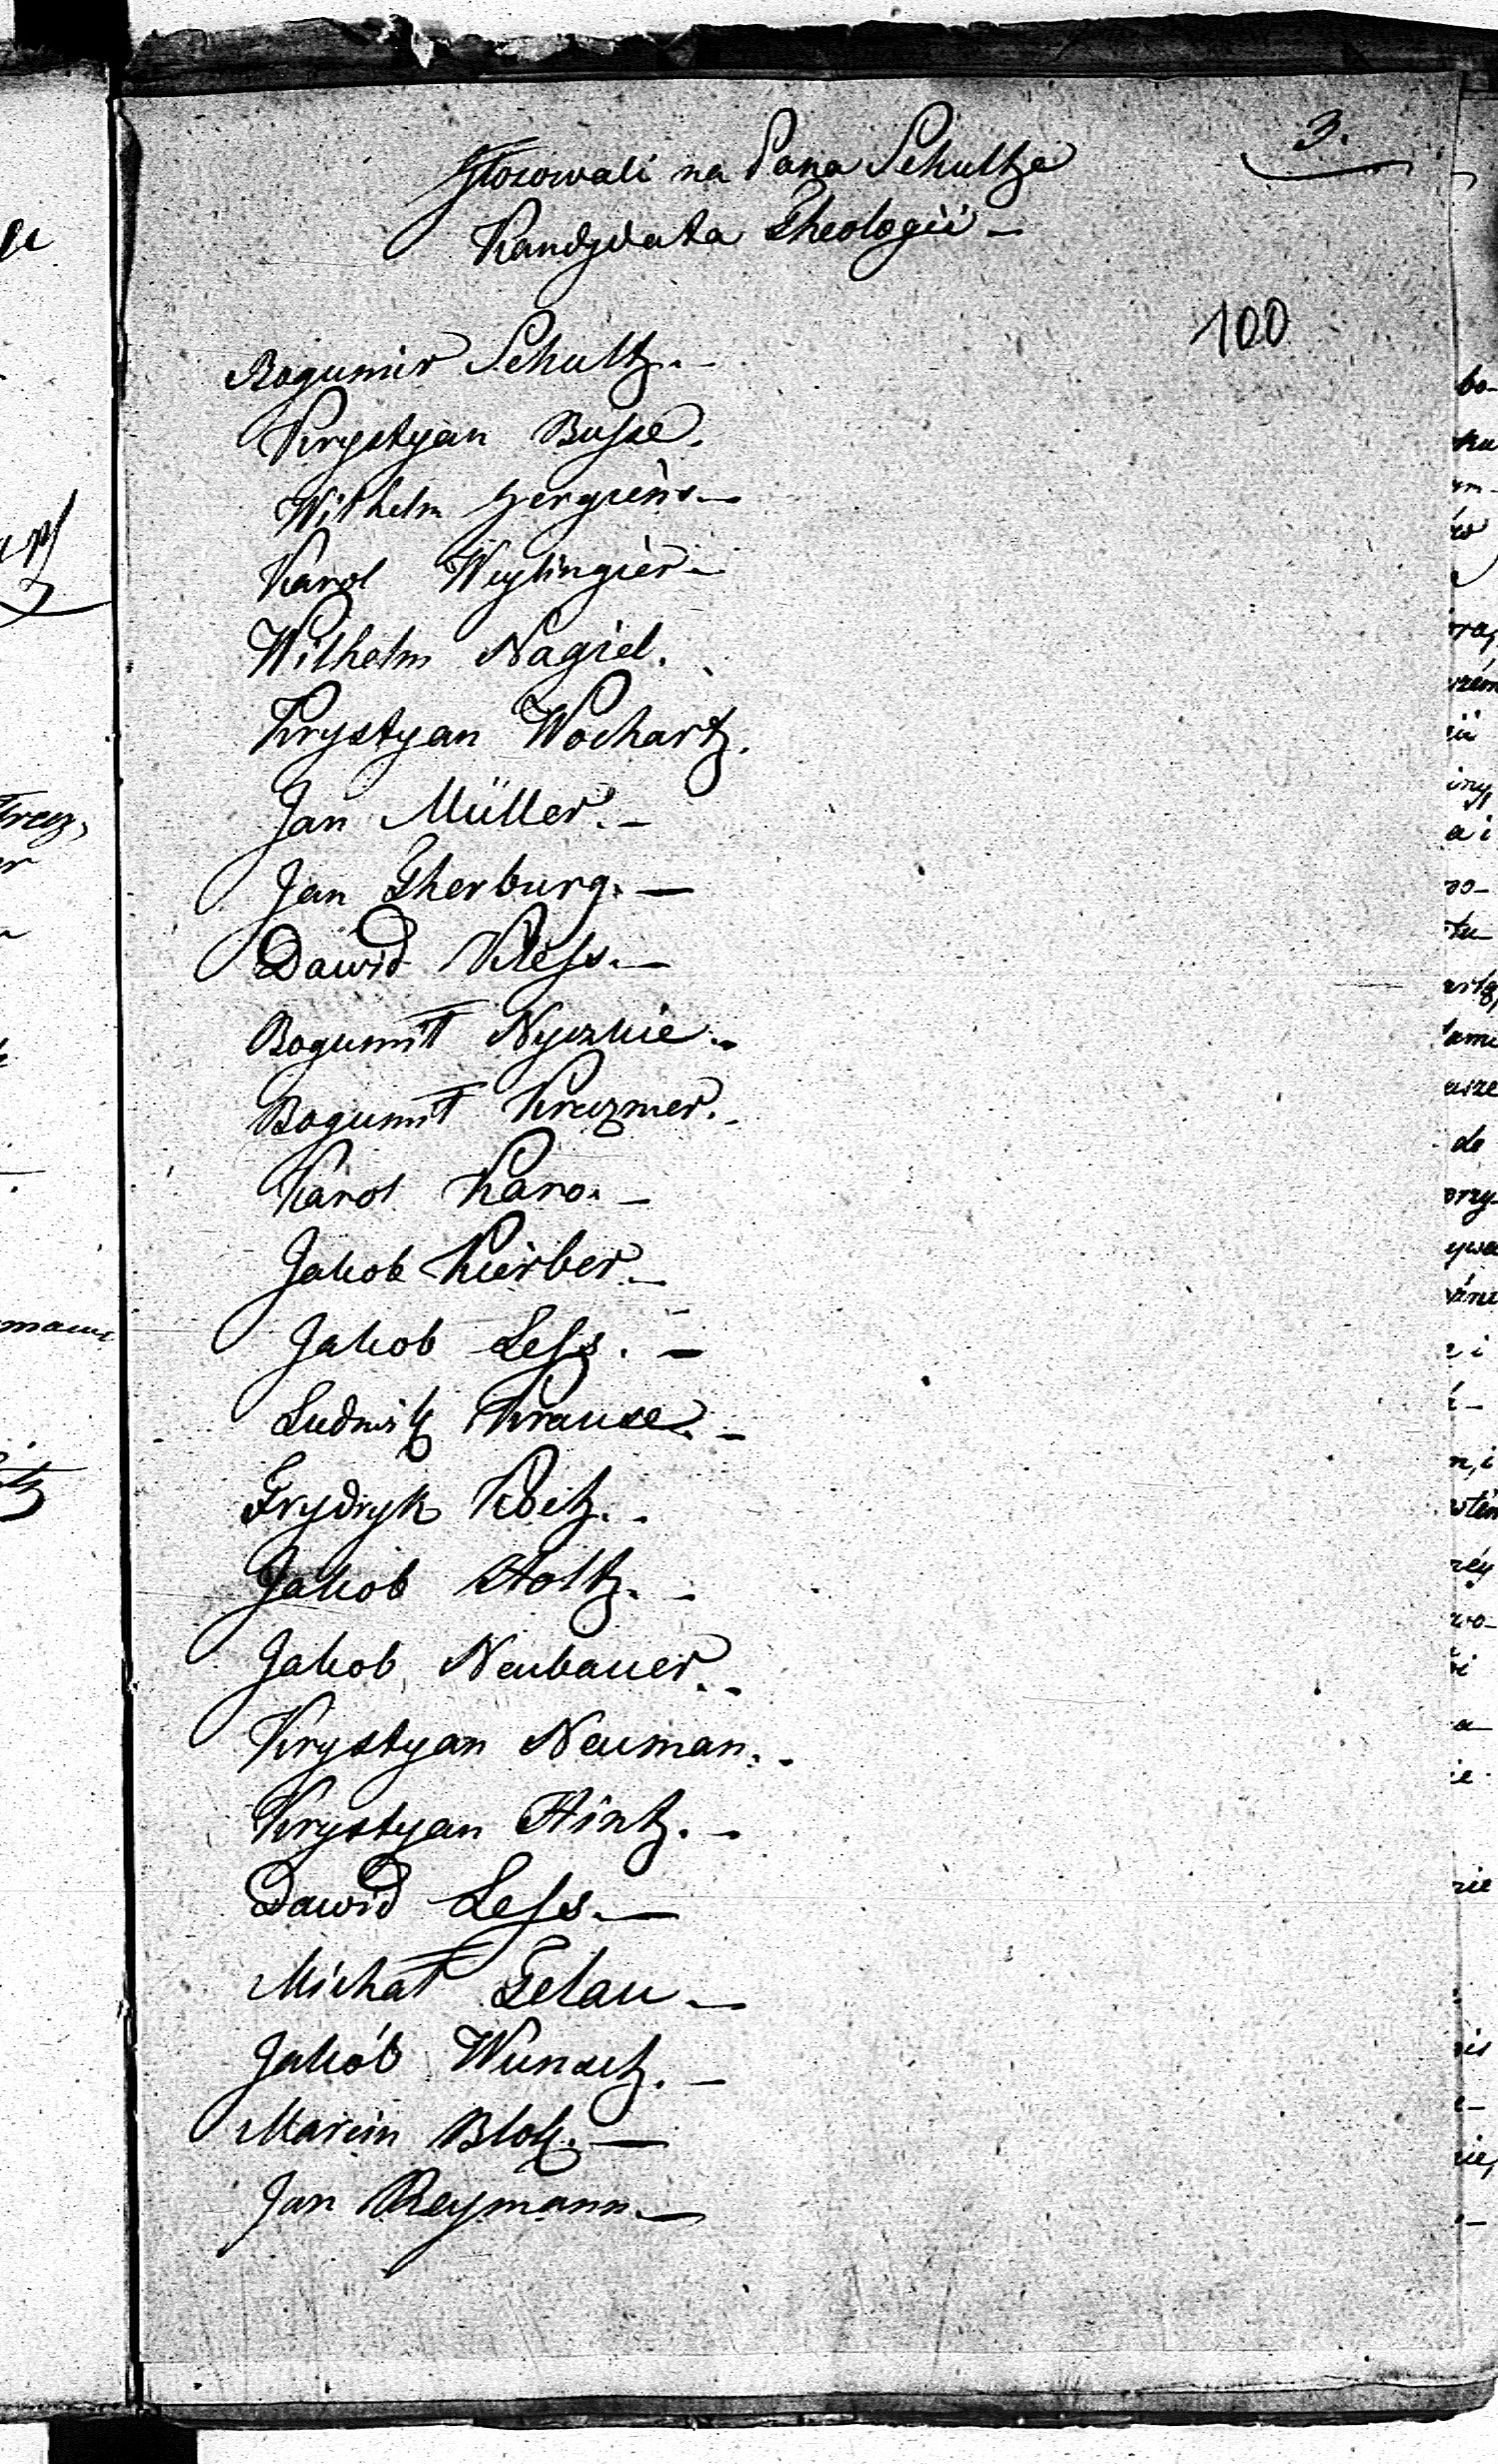 3.
Głosowali na Pana Schultze
Kandydata Theologii –
100
Bogumir Schultz. –
Krystyan Busse.
Wilhelm Jergiens –
Karol Weylingier –
Wilhelm Nagiel.
Krystyan Wochartz.
Jan Müller. –
Jan Therburg. –
Dawid Kless. –
Bogumił Nyczkie. –
Bogumił Kreczmer. –
Karol Karo. –
Jakob Kierber. –
Jakob Less. –
Ludwik Krause. –
Frydryk Koitz. –
Jakob Stoltz. –
Jakob Neubauer. –
Krystyan Neuman. –
Krystyan Hintz. –
Dawid Less. –
Michał Felau –
Jakób Wunsch. –
Marcin Blok. –
Jan Reymann. –